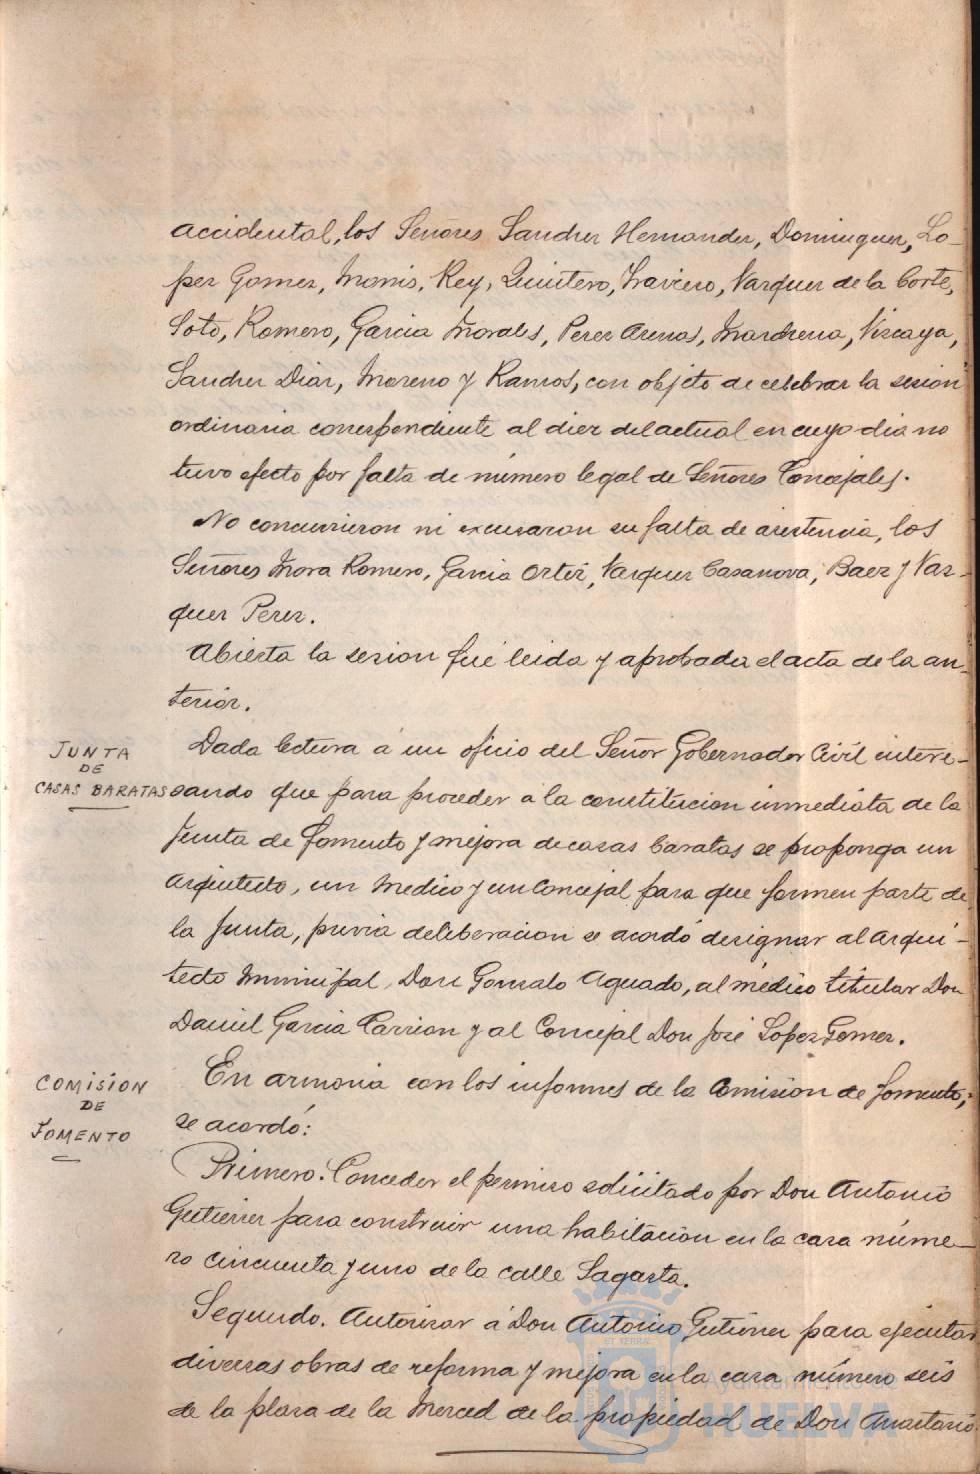 accidental, los Señores Sanchez Hernandez, Dominguez, Lo-
pez Gomez, Monis, Rey, Quintero, Traviero, Vazquez de la Corte,
Soto, Romero, Garcia Morales, Perez Arenas, Marchena, Vizcaya,
Sanchez Diaz, Moreno y Ramos, con objeto de celebrar la sesion
ordinaria correspondiente al diez del actual en cuyo dia no
tuvo efecto por falta de número legal de Señores Concejales.
No concurrieron ni excusaron su falta de asistencia, los
Señores Mora Romero, Garcia Ortiz, Vazquez Casanova, Baez y Vaz-
quez Perez.
Abierta la sesion fué leida y aprobada el acta de la an-
terior.
JUNTA
DE
CASAS BARATAS
Dada lectura á un oficio del Señor Gobernador Civil intere-
sando que para proceder a la constitucion inmediata de la
Junta de fomento y mejora de casas baratas se proponga un
Arquitecto, un Medico y un Concejal para que formen parte de
la Junta, previa deliberacion se acordó designar al Arqui-
tecto Municipal, Don Gonzalo Aguado, al médico titular Don
Daniel Garcia Carrion y al Concejal Don José Lopez Gomez.
COMISION
DE
FOMENTO
En armonia con los informes de la Comision de fomento,
se acordó:
Primero. Conceder el permiso solicitado por Don Antonio
Gutierrez para construir una habitacion en la casa núme-
ro cincuenta y uno de la calle Sagasta.
Segundo. Autorizar á Don Antonio Gutierrez para ejecutar
diversas obras de reforma y mejora en la casa número seis
de la plaza de la Merced de la propiedad de Don Anastasio
Ayuntamiento de
HUELVA